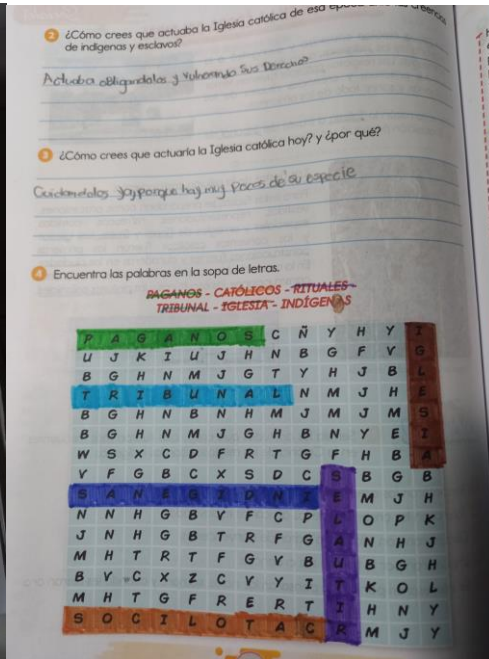 2 ¿Cómo crees que actuaba la Iglesia católica de esa
de indígenas y esclavos?
Actuaba obligandolos y vulnerando sus Derechos
3 ¿Cómo crees que actuaría la Iglesia católica hoy? y ¿por qué?
Cuidandolos ya porque hay muy pocos de su especie
4 Encuentra las palabras en la sopa de letras.
PAGANOS - CATÓLICOS - RITUALES -
TRIBUNAL - IGLESIA - INDÍGENAS
P A G A N O S C Ñ Y H Y I
U J K I U J H N B G F V G
B G H N M J G T Y H J B L
T R I B U N A L N M J H E
B G H N B N H M J M J M S
B G H N M J G H B N Y E I
W S X C D F R T G F H B A
V F G B C X S D C S B G B
S A N E G I D N I E M J H
N N H G B V F C P L O P K
J N H G B T R F G A N H J
M H T R T F G V B U B G H
B V C X Z C V Y I T K O L
M H T G F R E R T I H N Y
S O C I L O T A C R M J Y